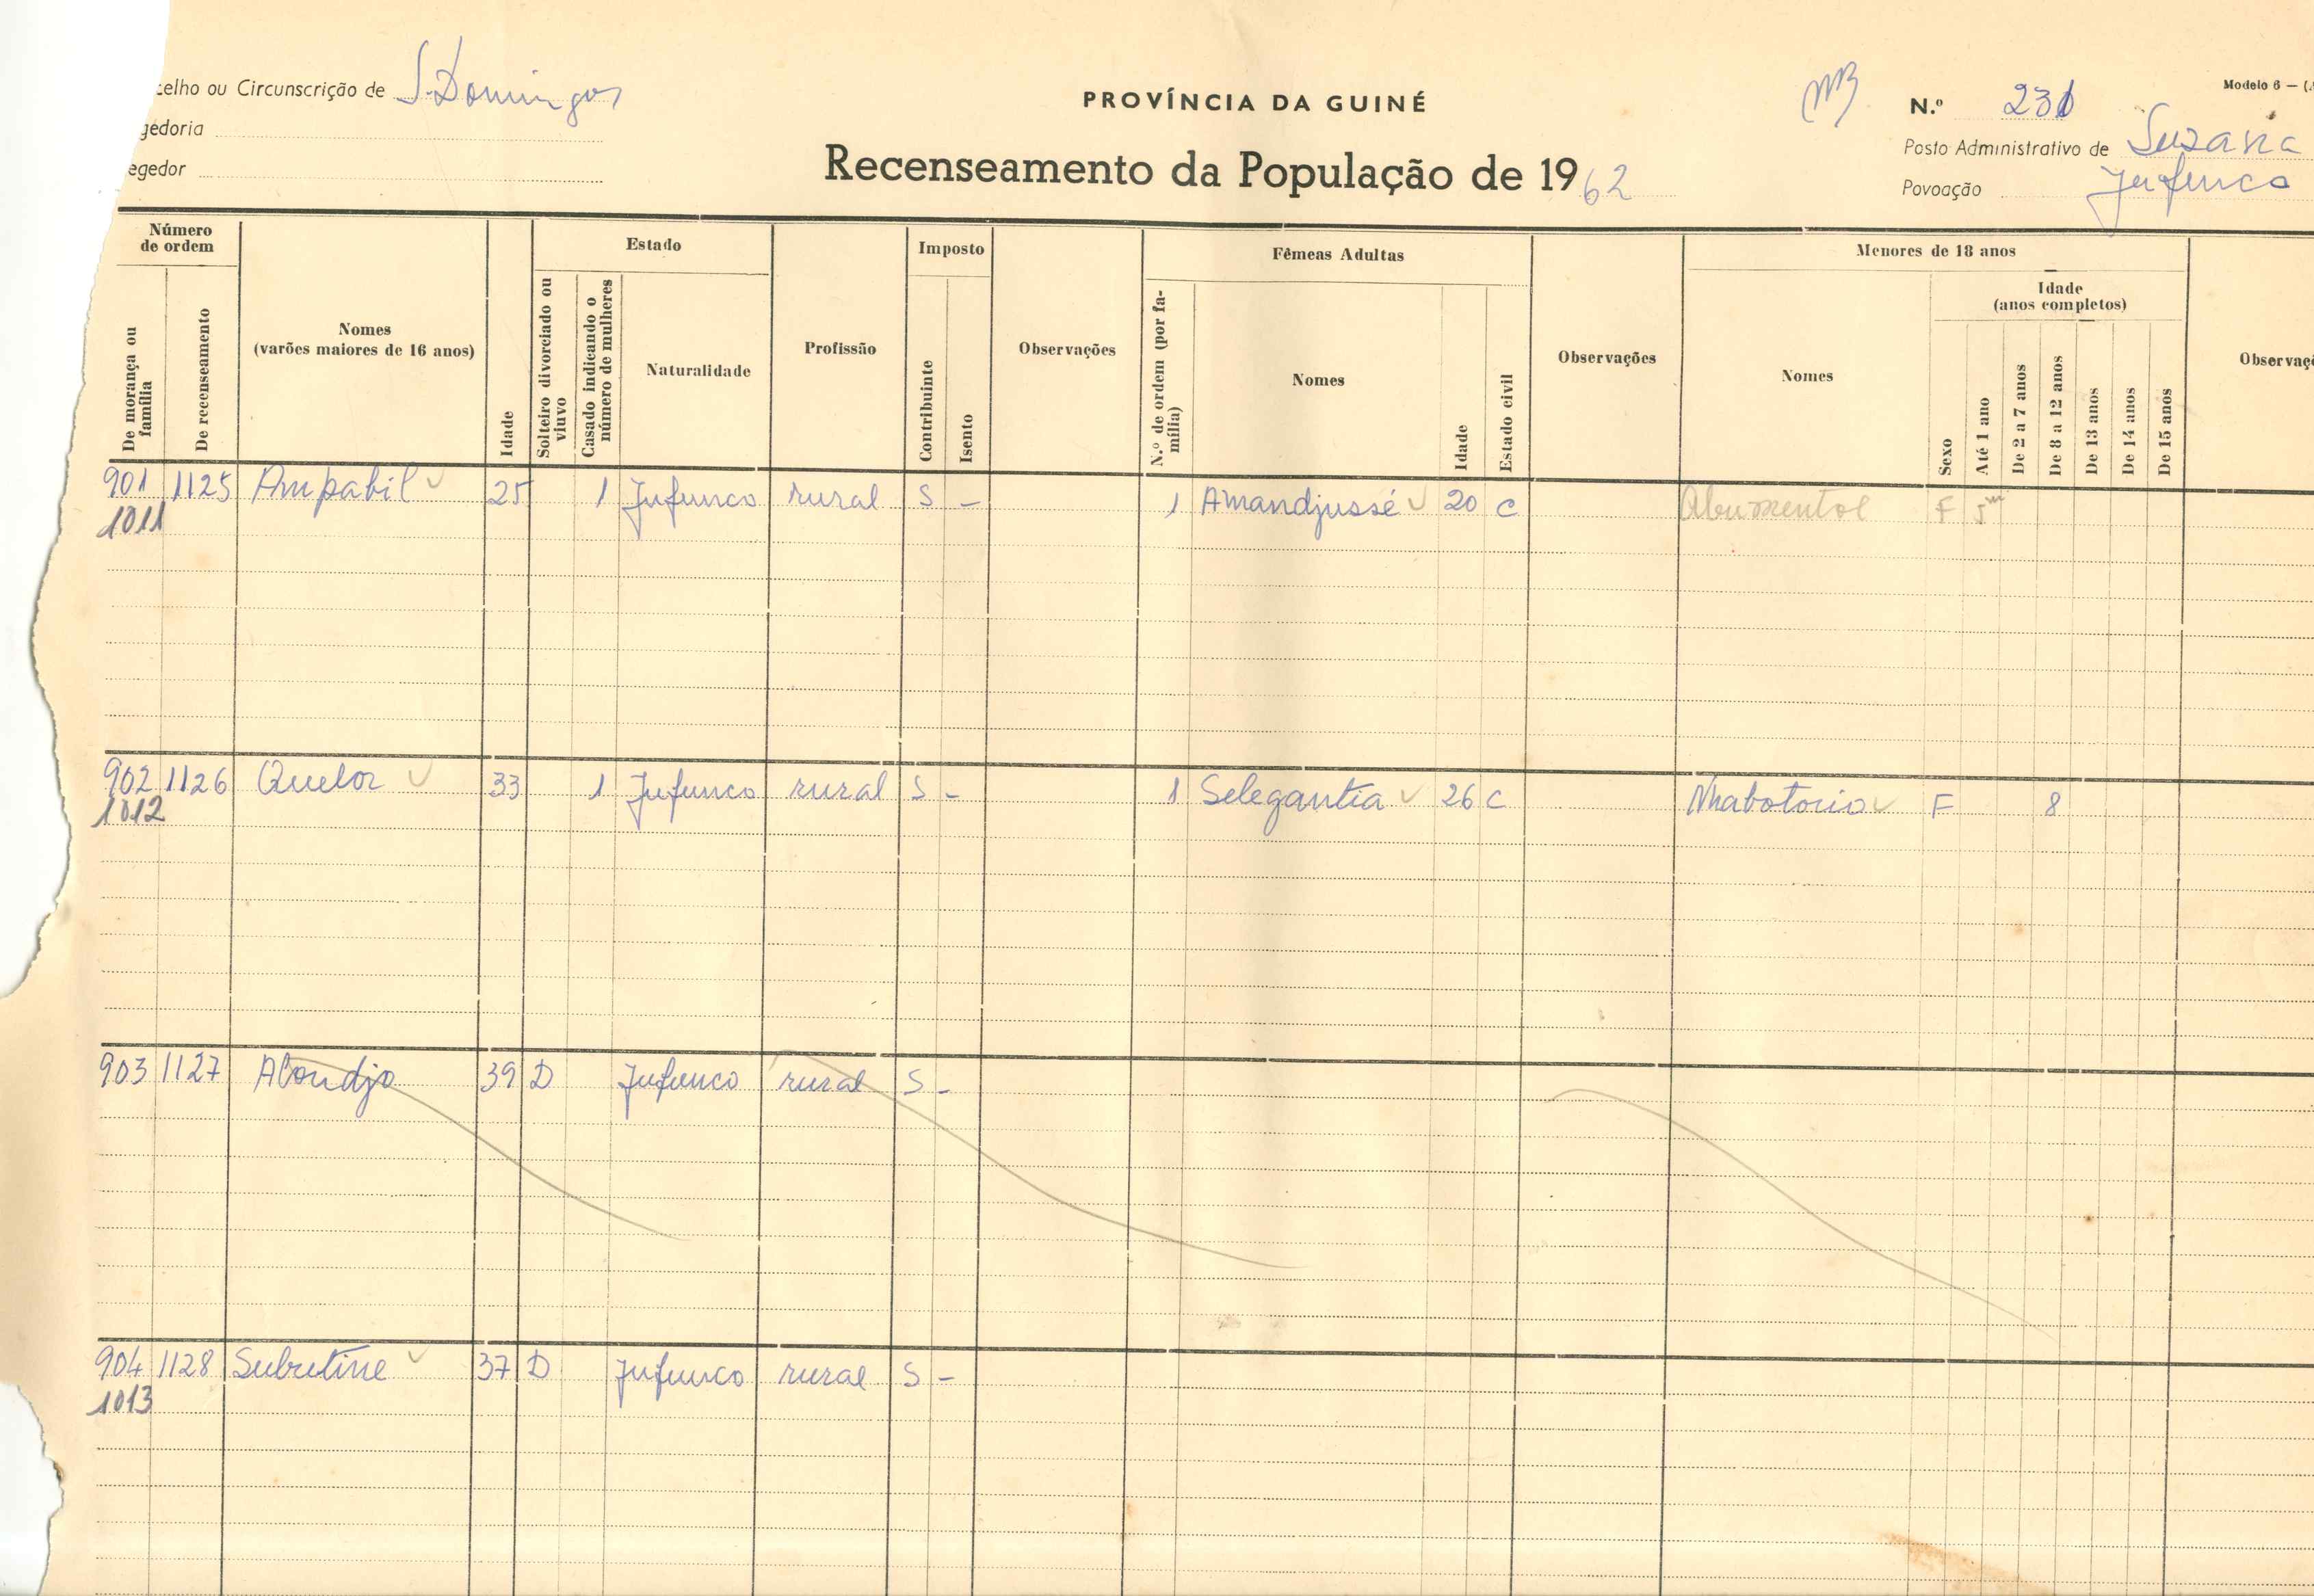 celho ou Circunscrição de S. Domingos
gedoria
egedor
PROVÍNCIA DA GUINÉ
Recenseamento da População de 1962
MB
Modelo 6 — (
N.º 231
Posto Administrativo de Suzana
Povoação Jufunco
Número de ordem
De morança ou família
De recenseamento
Nomes
(varões maiores de 16 anos)
Idade
Estado
Solteiro divorciado ou viuvo
Casado indicando o número de mulheres
Naturalidade
Profissão
Imposto
Contribuinte
Isento
Observações
Fêmeas Adultas
N.º de ordem (por família)
Nomes
Idade
Estado civil
Observações
Menores de 18 anos
Nomes
Sexo
Idade
(anos completos)
Até 1 ano
De 2 a 7 anos
De 8 a 12 anos
De 13 anos
De 14 anos
De 15 anos
Observaç
901 1125 Ampabil 25 1 Jufunco rural S - 1 Amandjussé 20 C F 5m
1011
902 1126 Quelor 33 1 Jufunco rural S - 1 Selegantia 26 C Nhabotorio F 8
1012
903 1127 Alondjo 39 D Jufunco rural S -
904 1128 Subretine 37 D Jufunco rural S -
1013